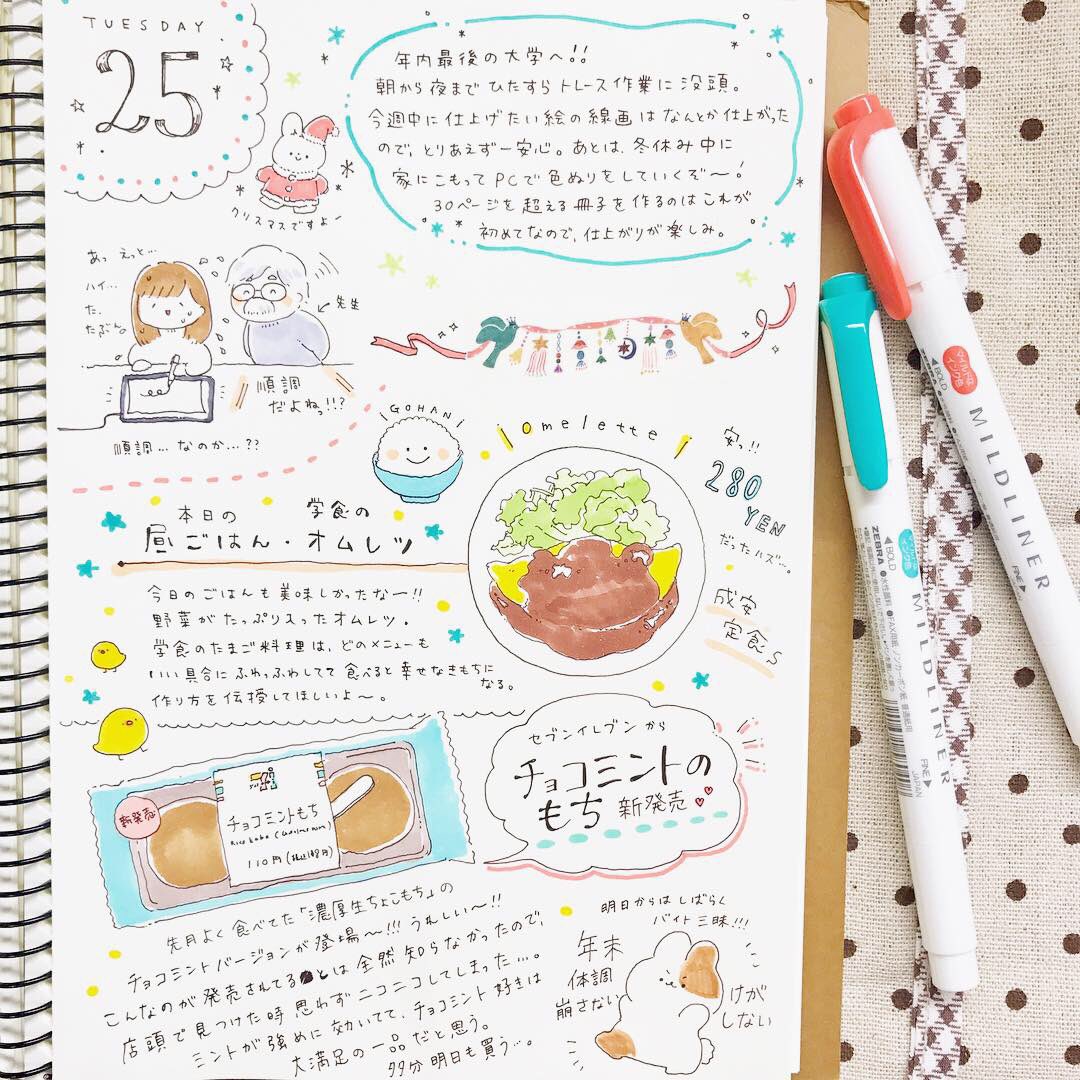 TUESDAY
25
年内最後の大学へ!!
朝から夜まで ひたすら トレース作業に没頭。
今週中に仕上げたい絵の線画はなんとか仕上がった
ので、とりあえず一安心。あとは、冬休み中に
家にこもって PCで色ぬりをしていくぞ〜!
30ページを超える冊子を作るのはこれが
初めてなので、仕上がりが楽しみ。
クリスマスですよー
あっ えっと…
ハイ…
た、
たぶん。
←先生
順調
だよねっ!!?
順調…なのか…??
GOHAN
omelette
安っ!!
280
YEN
だったハズ…。
成安
定食S
本日の 学食の
昼ごはん・オムレツ
今日のごはんも美味しかったなー!!
野菜がたっぷり入ったオムレツ。
学食のたまご料理は、どのメニューも
いい具合にふわっふわしてて食べると幸せなきもちに
なる。
作り方を伝授してほしいよ〜。
セブンイレブンから
チョコミントの
もち 新発売
新発売
チョコミントもち
110円(税込118円)
先月よく食べてた「濃厚生ちょこもち」の
チョコミントバージョンが登場〜!!! うれしい〜!!
こんなのが発売されてるとは全然知らなかったので、
店頭で見つけた時思わずニコニコしてしまった…。
ミントが強めに効いてて、チョコミント好きは
大満足の一品だと思う。
多分明日も買う…。
明日からはしばらく
バイト三昧!!!
年末
体調
崩さない
けが
しない
◀BOLD
ZEBRA
マイルドな
インク色
MILDLINER
FINE▶
◀BOLD
ZEBRA
MILDLINER
FINE▶
JAPAN